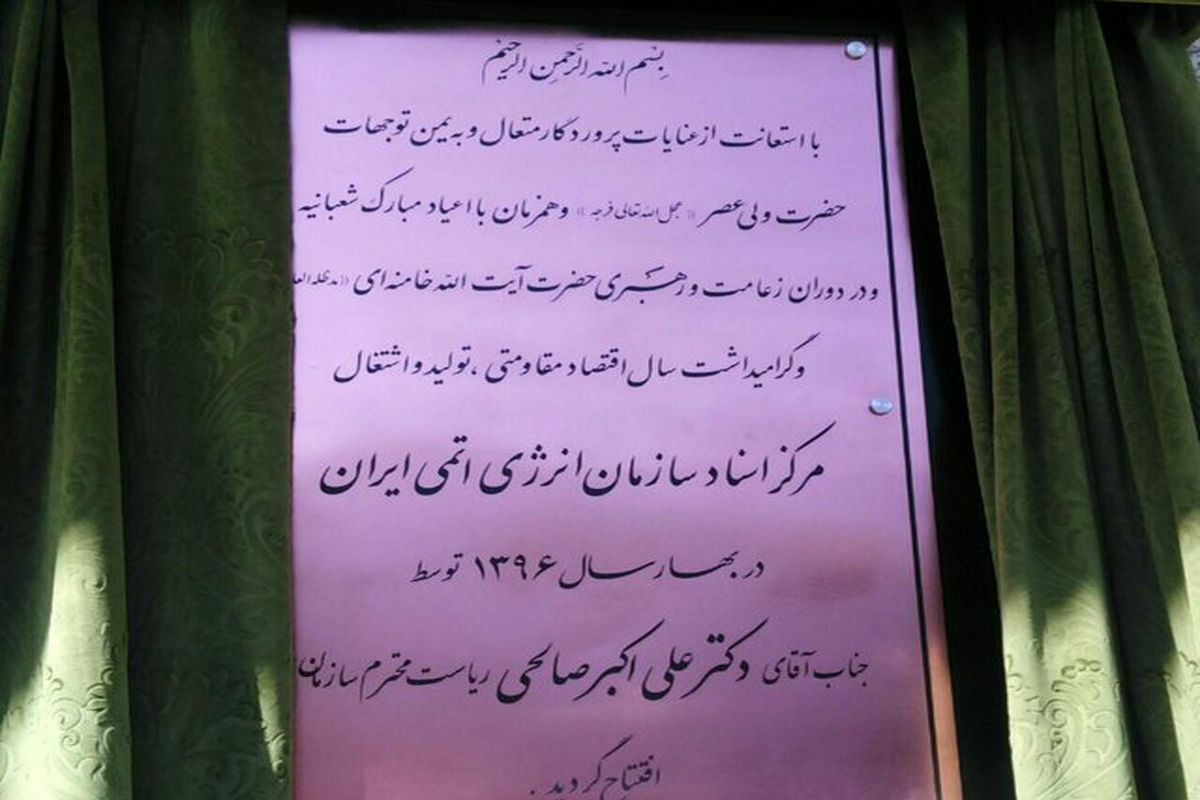 بِسْمِ اللّه الرَّحمنِ الرحیم
با استعانت از عنایات پروردگار متعال و به یمن توجهات
حضرت ولی عصر «عجل الله تعالی فرجه» و همزمان با اعیاد مبارک شعبانیه
و در دوران زعامت و رهبری حضرت آیت الله خامنه ای «مدظله العا
و گرامیداشت سال اقتصاد مقاومتی ، تولید و اشتغال
مرکز اسناد سازمان انرژی اتمی ایران
در بهار سال ۱۳۹۶ توسط
جناب آقای دکتر علی اکبر صالحی ریاست محترم سازمان
افتتاح گردید .